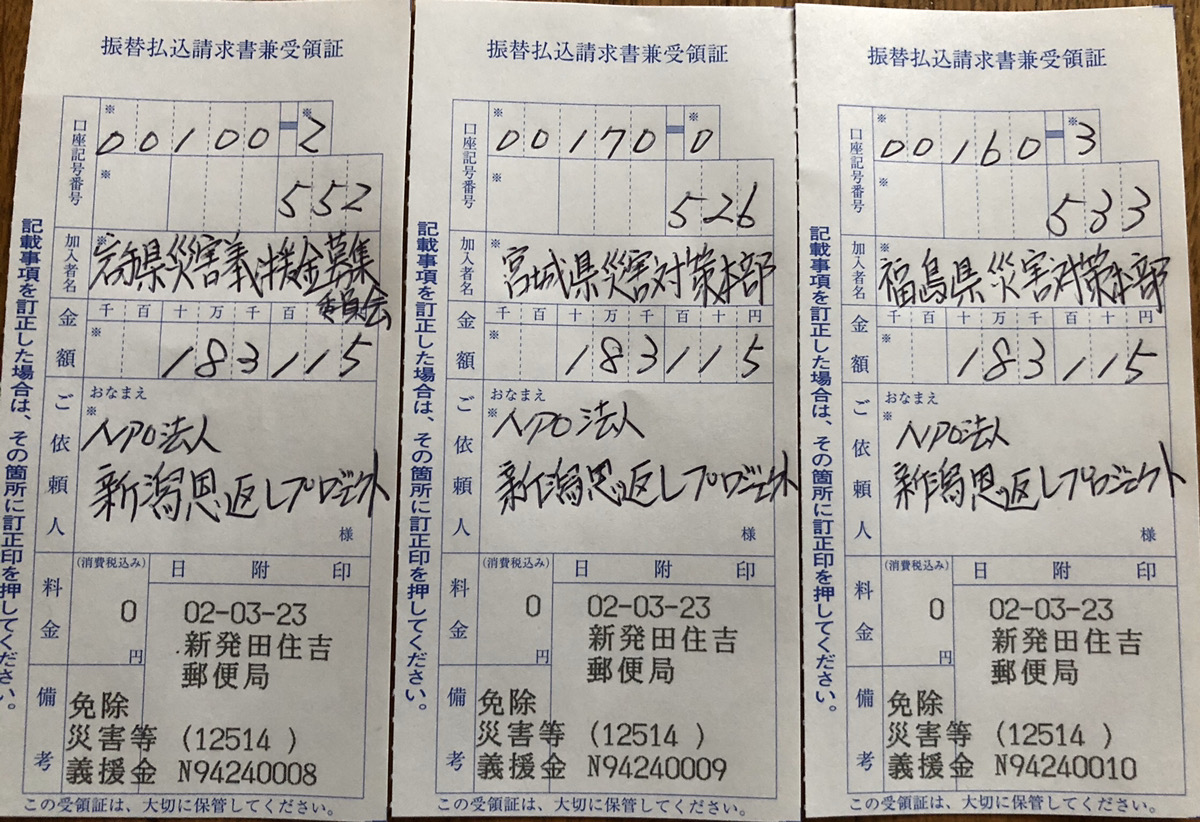 振替払込請求書兼受領証
口座記号番号
※ 00100-2 ※
※ 552
加入者名
※ 岩手県災害義援金募集
委員会
金額
千 百 十 万 千 百 十 円
※ 183115
ご依頼人
おなまえ
※ NPO法人
新潟恩返しプロジェクト
様
料金
(消費税込み)
0
円
日 附 印
02-03-23
新発田住吉
郵便局
備考
免除
災害等 (12514 )
義援金 N94240008
この受領証は、大切に保管してください。
記載事項を訂正した場合は、その箇所に訂正印を押してください。
振替払込請求書兼受領証
口座記号番号
※ 00170-0 ※
※ 526
加入者名
※ 宮城県災害対策本部
金額
千 百 十 万 千 百 十 円
※ 183115
ご依頼人
おなまえ
※ NPO法人
新潟恩返しプロジェクト
様
料金
(消費税込み)
0
円
日 附 印
02-03-23
新発田住吉
郵便局
備考
免除
災害等 (12514 )
義援金 N94240009
この受領証は、大切に保管してください。
記載事項を訂正した場合は、その箇所に訂正印を押してください。
振替払込請求書兼受領証
口座記号番号
※ 00160-3 ※
※ 533
加入者名
※ 福島県災害対策本部
金額
千 百 十 万 千 百 十 円
※ 183115
ご依頼人
おなまえ
※ NPO法人
新潟恩返しプロジェクト
様
料金
(消費税込み)
0
円
日 附 印
02-03-23
新発田住吉
郵便局
備考
免除
災害等 (12514 )
義援金 N94240010
この受領証は、大切に保管してください。
記載事項を訂正した場合は、その箇所に訂正印を押してください。